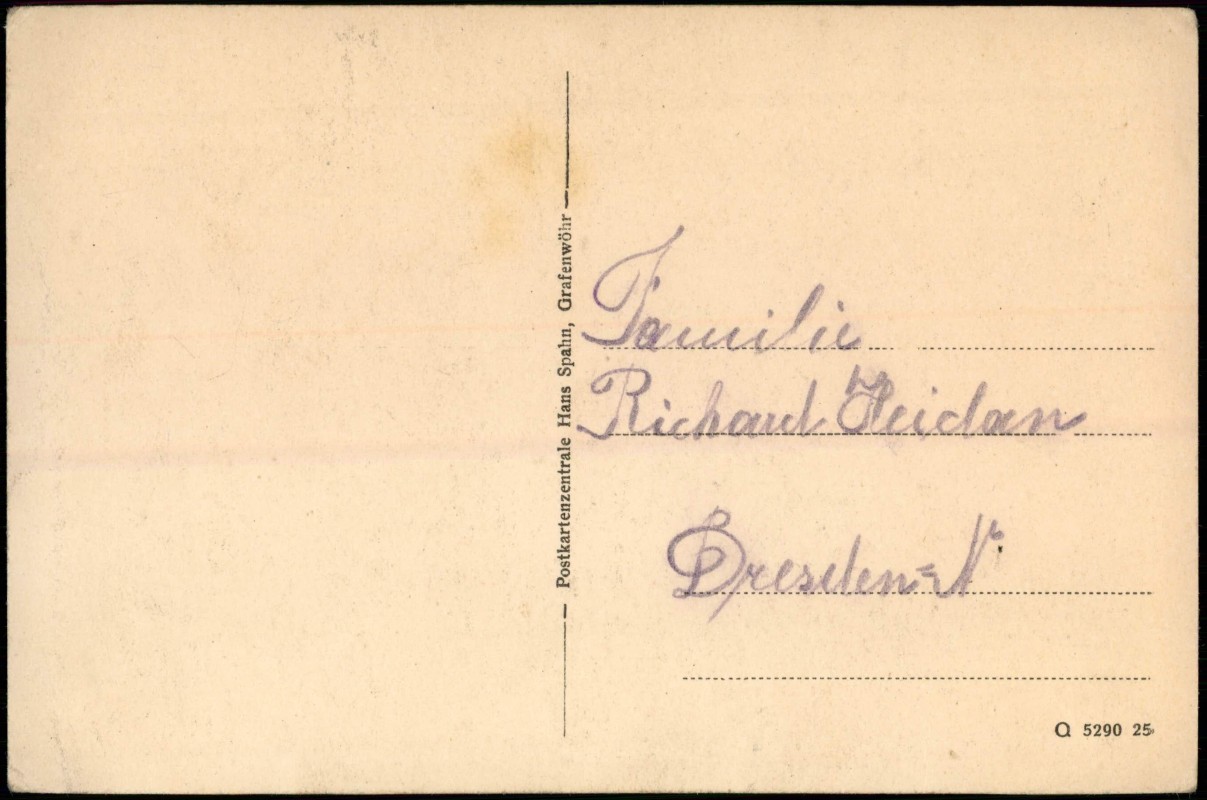 Postkartenzentrale Hans Spahn, Grafenwöhr
Familie
Richard Heidan
Dresden=N
Q 5290 25